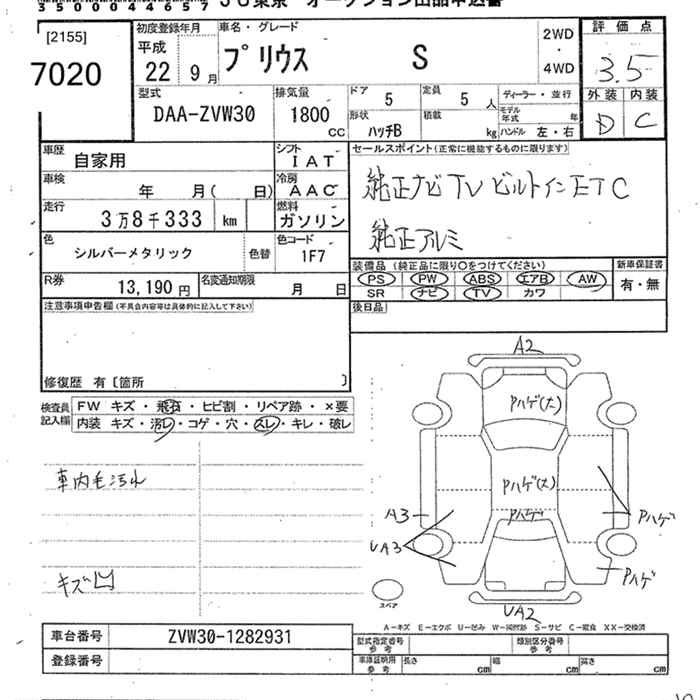 35000446 57
JU東京 オークション出品申込書
[2155]
7020
初度登録年月
平成
22 9月
車名・グレード
プリウス S
2WD
・
4WD
評価点
3.5
外装 内装
D C
型式
DAA-ZVW30
排気量
1800
CC
ドア
5
定員
5人
形状
ハッチB
積載
kg
ディーラー・並行
モデル年式 年
ハンドル 左・右
車歴
自家用
シフト
IAT
車検
年 月( 日)
冷房
AAC
走行
3万8千333 km
燃料
ガソリン
色
シルバーメタリック
色替
色コード
1F7
R券
13,190円
名変通知期限
月 日
セールスポイント(正常に機能するものに限ります)
純正ナビ TV ビルトインETC
純正アルミ
装備品(純正品に限り○をつけてください)
新車保証書
PS PW ABS エアB AW
SR ナビ TV カワ
有・無
後日品
注意事項申告欄(不具合内容等は具体的に記入して下さい)
修復歴 有〔箇所 〕
検査員
記入欄
FW キズ・飛石・ヒビ割・リペア跡・×要
内装 キズ・汚レ・コゲ・穴・スレ・キレ・破レ
車内毛汚れ
キズ凹
A2
Pハゲ(大)
Pハゲ(大)
Pハゲ
A3
UA3
Pハゲ
Pハゲ
UA2
スペア
A-キズ E-エクボ U-凹み W-補修跡 S-サビ C-腐食 XX-交換済
車台番号
ZVW30-1282931
登録番号
型式指定番号
参考
類別区分番号
参考
車庫証明用
参考
長さ cm
幅 cm
高さ cm